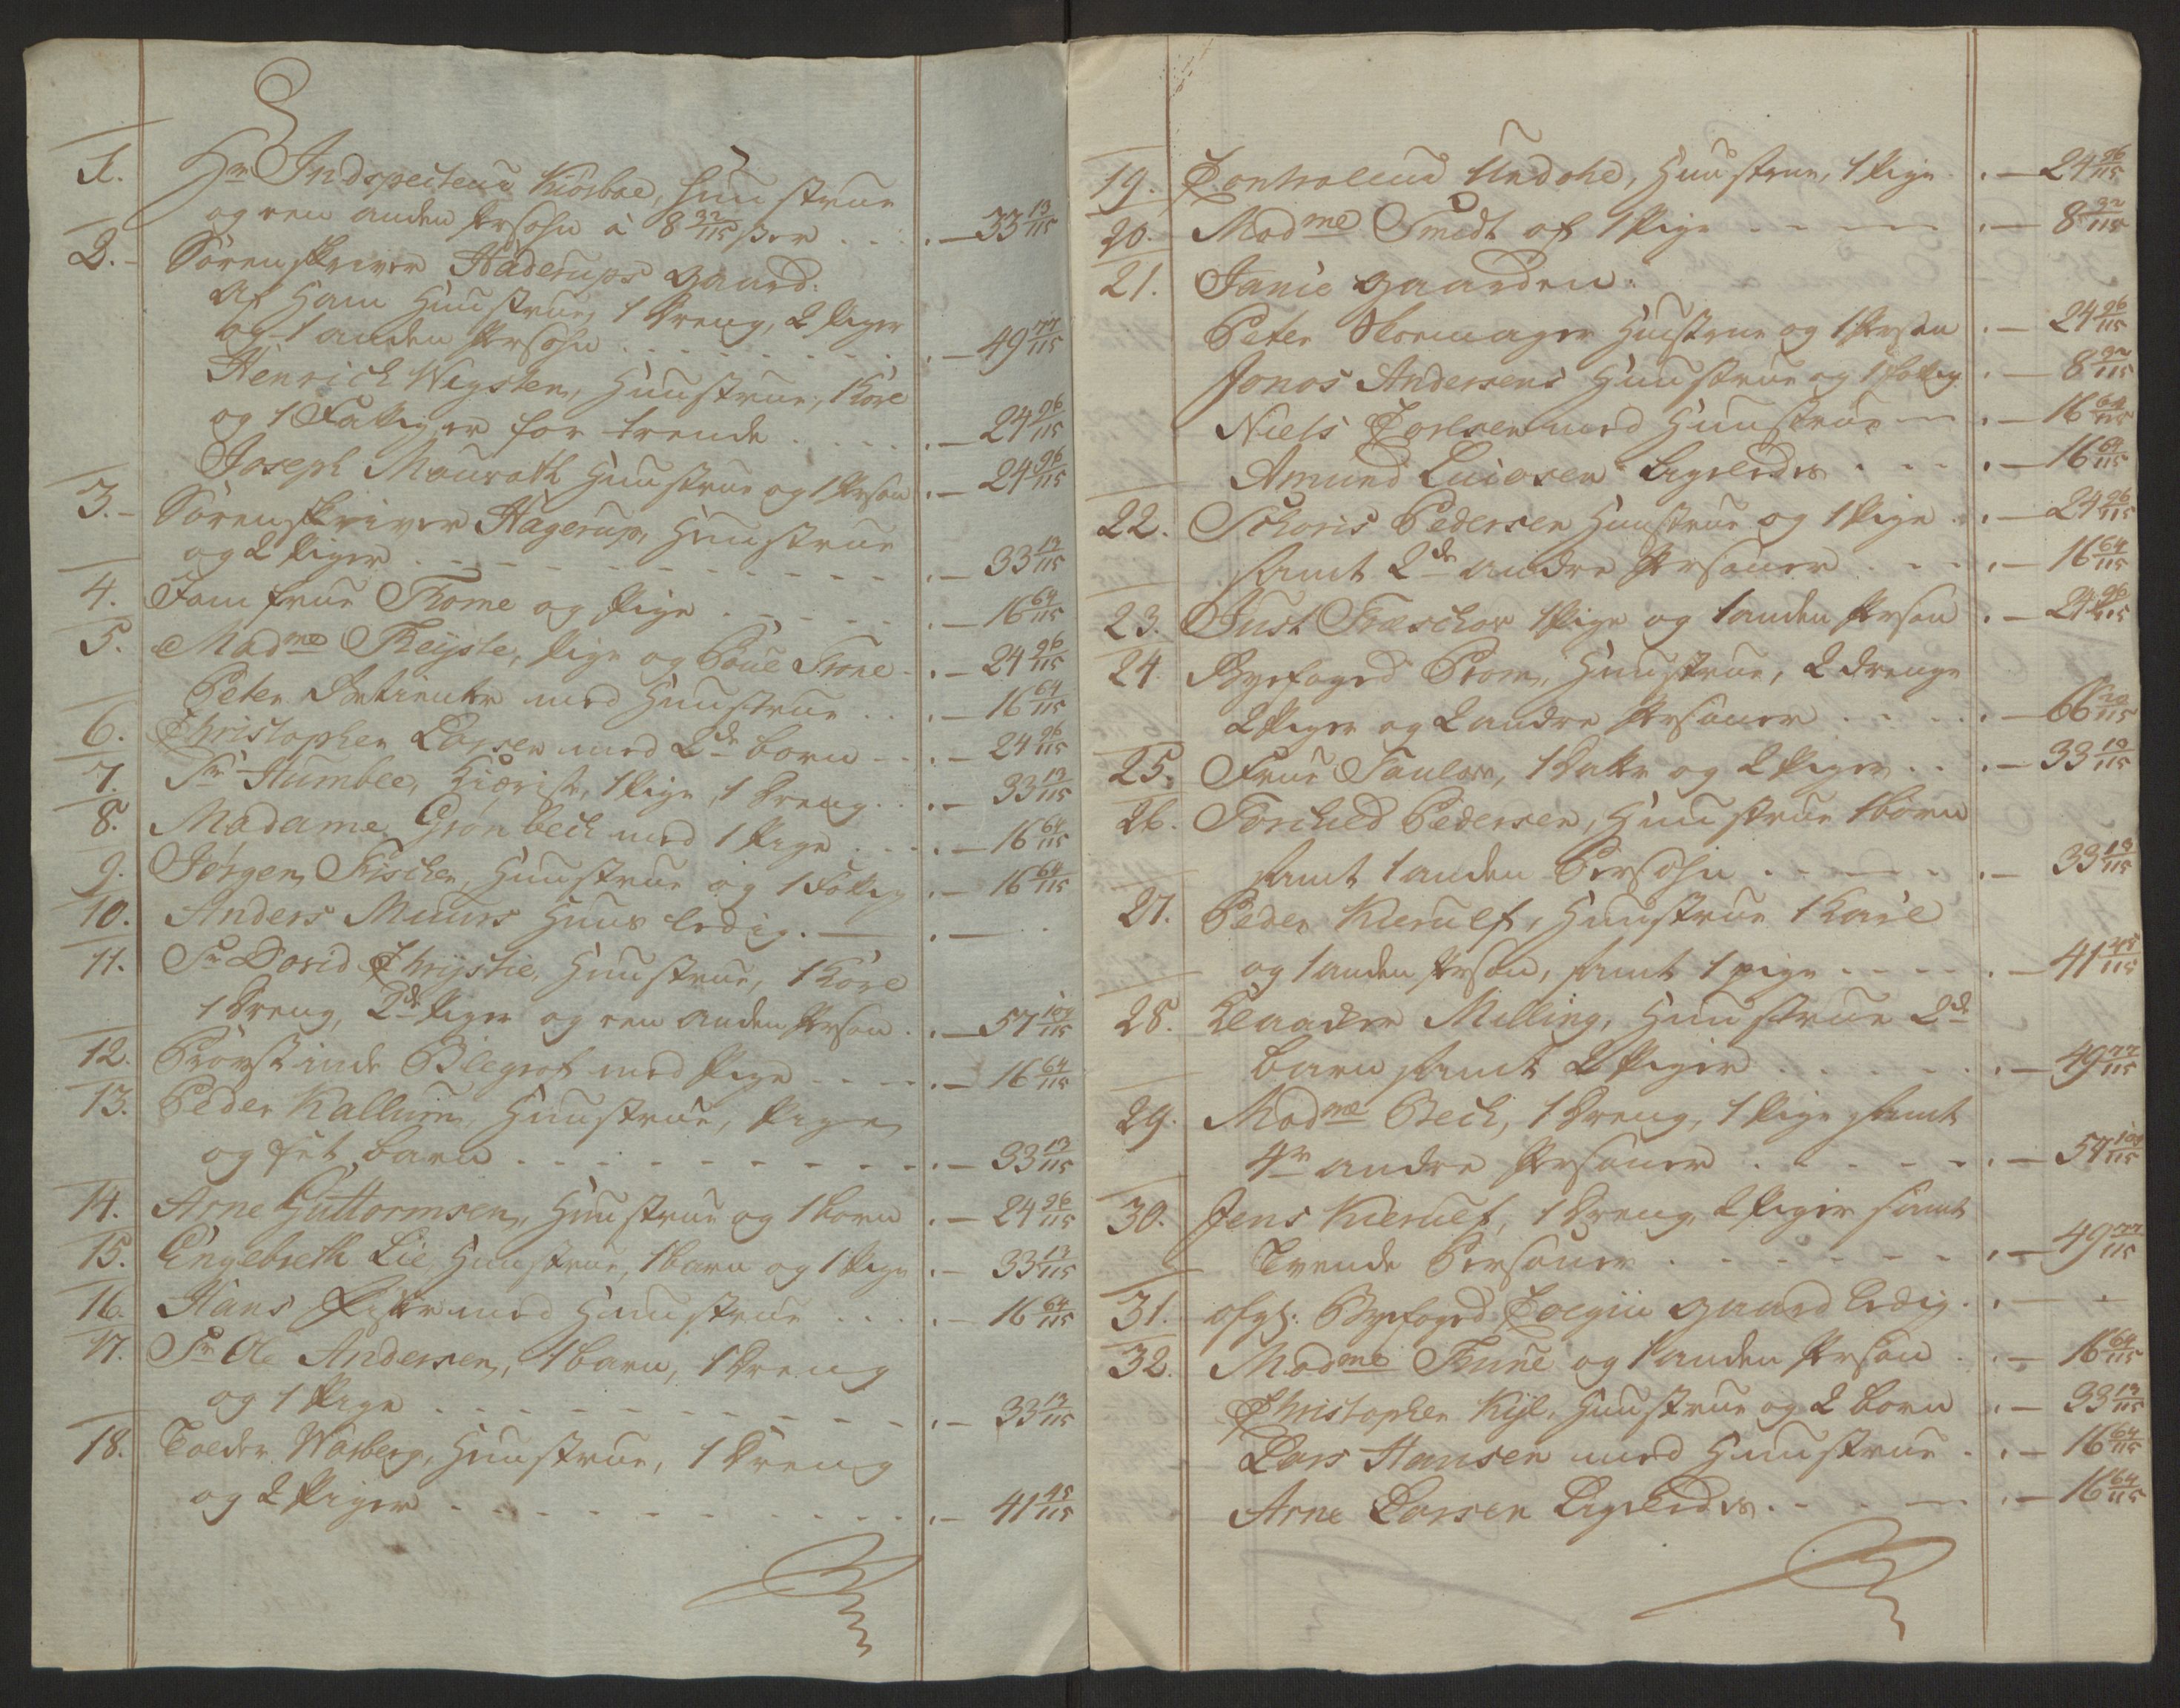 1. Hr Indspecteur Kiørboe, Huustrue
og een anden Persohn à 8 32/115 ser . . . - 33 13/115
2. Sørenskriver Haderups gaard:
Af Ham Huustrue, 1 Dreng, 2 Piger
og 1 anden Persohn . . . - 49 77/115
Henrich Wegsten, Huustrue, 1 Kone
og 1 Fattig er for trende . . . - 24 96/115
Joseph Maurath Huustrue og 1 Person . - 24 96/115
3. Sørenskriver Hagerup, Huustrue
og 2 Piger . . . - 33 13/115
4. Jomfrue Thome og Pige . . . - 16 64/115
5. Madme Theyste, Pige og Poul Trone . - 24 96/115
Peter med Huustrue . . . - 16 64/115
6. Christopher Larsen med 2de børn . . - 24 96/115
7. Sr Humble, 1 Pige, 1 Dreng . . - 33 13/115
8. Madame Grønbech med 1 Pige . . . - 16 64/115
9. Jørgen Fischer, Huustrue og 1 Fattig . - 16 64/115
10. Anders Muurs Huus ledig. — . —
11. Sr David Chrystie, Huustrue, 1 Karl
1 Dreng, 2de Piger og een anden Person . - 57 109/115
12. Provstinde Blegrof med Pige . . . - 16 64/115
13. Peder Kallum, Huustrue, Pige
og et barn . . . - 33 13/115
14. Arne Guttormsen, Huustrue og 1 barn . - 24 96/115
15. Engebreth Lie, Huustrue, 1 barn og 1 Pige . - 33 13/115
16. Hans med Huustrue . . . - 16 64/115
17. Sr Ole Andersen, 1 barn, 1 Dreng
og 1 Pige . . . - 33 13/115
18. Tolder Warberg, Huustrue, 1 Dreng
og 2 Piger . . . - 41 45/115
19. Controlleur Undahl, Huustrue, 1 Pige . - 24 96/115
20. Madme Smidt af 1 Pige . . . - 8 32/115
21. Janie gaarden:
Peter Skomager Huustrue og 1 Person . - 24 96/115
Jonas Andersens Huustrue og 1 Fattig . - 8 32/115
Niels Carlsen med Huustrue . - 16 64/115
Amund Ligeledes . . . - 16 64/115
22. Thoris Pedersen Huustrue og 1 Pige . - 24 96/115
samt 2de andre Personer . . . - 16 64/115
23. Just 1 Pige og 1 anden Person . - 24 96/115
24. Byefoged Prom, Huustrue, 2 Drenge
2 Piger og 2 andre Personer . . . - 66 26/115
25. Frue Paulsen, 1 Datter og 2 Piger . . - 33 13/115
26. Torchild Pedersen, Huustrue 1 børn
samt 1 anden Persohn . . . - 33 13/115
27. Peder Kierulf, Huustrue 1 Karl
og 1 anden Person, samt 1 pige . . . - 41 45/115
28. Klaaker Milling, Huustrue 2de
børn samt 2 Piger . . . - 49 77/115
29. Madme Bech, 1 Dreng, 1 Pige samt
4re andre Personer . . . - 57 109/115
30. Jens Kierulf, 1 Dreng, 2 Piger samt
Trende Personer . . . - 49 77/115
31. afgl: Byefoged gaard ledig . . - .
32. Madme Trune og 1 anden Person . . - 16 64/115
Christopher Kiyl, Huustrue og 2 børn . - 33 13/115
Lars Hansen med Huustrue . . - 16 64/115
Arne Larsen Ligeledes . . . - 16 64/115